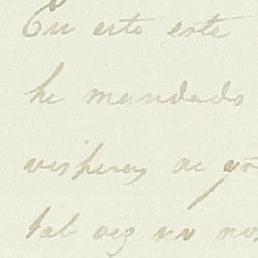 En esto este
he mandado
visperas de yo
tal vez no nos